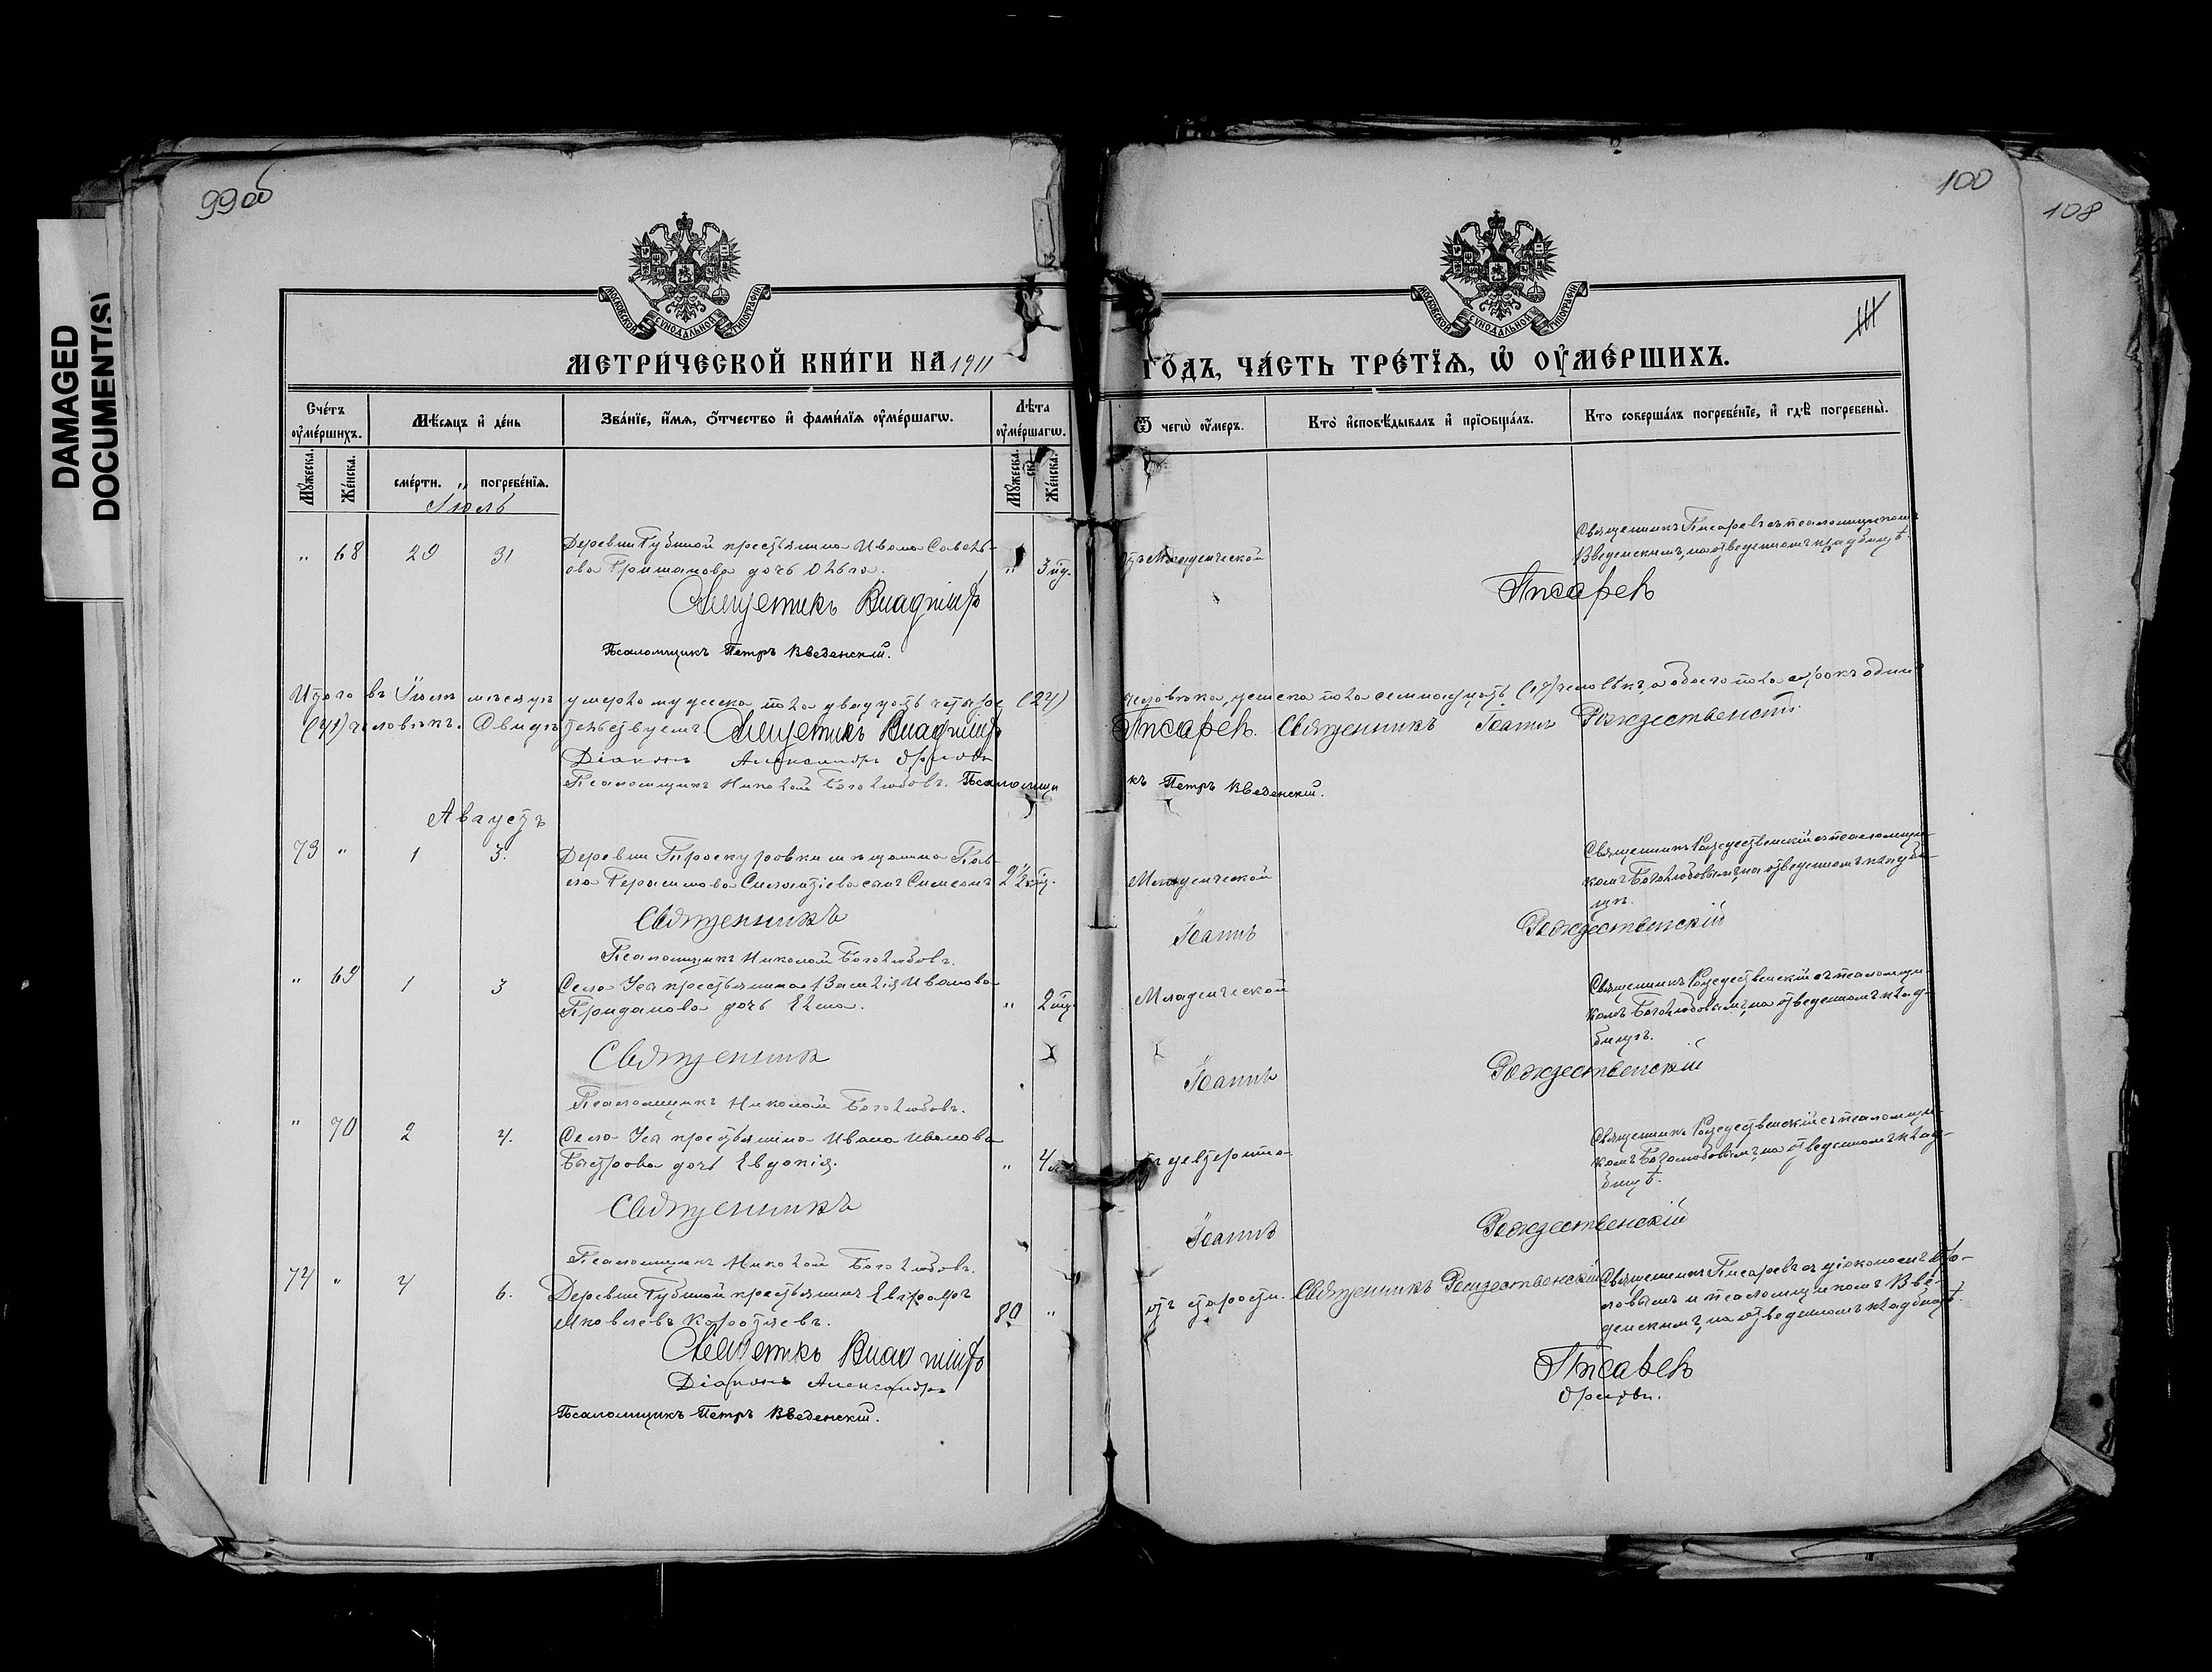 DAMAGED
DOCUMENT(S)
99 об
100
108
МОСКОВСКОЙ СѴНОДАЛЬНОЙ ТИПОГРАФІИ
МОСКОВСКОЙ СѴНОДАЛЬНОЙ ТИПОГРАФІИ
МЕТРИ́ЧЕСКОЙ КНИ́ГИ НА 1911 ГО́ДЪ, ЧА́СТЬ ТРЕ́ТЇѦ, Ѡ҆ ОУ҆МЕ́РШИХЪ.
Сче́тъ оу҆ме́ршихъ.
Мѣ́сѧцъ и҆ де́нь
Зва́нїе, и҆́мѧ, ѻ҆́тчество и҆ фами́лїѧ оу҆ме́ршагѡ.
Лѣ́та оу҆ме́ршагѡ.
Ѿ чегѡ̀ оу҆́мер.
Кто̀ и҆сповѣ́дывалъ и҆ прїѻбща́лъ.
Кто соверша́лъ погребе́нїе, и҆ гдѣ̀ погребены̀.
Мꙋ́жеска. Же́нска.
сме́рти. погребе́нїѧ.
Мꙋ́жеска. Же́нска.
Іюль
" 68 29 31 Деревни Губиной крестьянина Ивана Савель-
ева Гришанова дочь Ольга. " 3 нд. отъ Младенческой
Священникъ Писаревъ съ псаломщикомъ
Введенскимъ, на отведенномъ кладбищѣ.
Священникъ Владиміръ Писаревъ
Псаломщикъ Петръ Введенскій.
Итого въ Іюлѣ мѣсяцѣ умерло мужеска пола двадцать четыре (24) человѣка, женска пола семнадцать (17) человѣкъ, а обоего пола сорокъ одинъ
(41) человѣкъ. Свидѣтельствуемъ Священникъ Владиміръ Писаревъ. Священникъ Іоаннъ Рождественскій.
Діаконъ Александръ Орловъ
Псаломщикъ Николай Боголюбовъ. Псаломщикъ Петръ Введенскій.
Августъ
73 " 1 3. Деревни Проскуровки мѣщанина Пав-
ла Герасимова сынъ Симеонъ 2½ Младенческой
Священникъ Рождественскій съ псаломщи-
комъ Боголюбовымъ, на отведенномъ кладби-
щѣ.
Священникъ Іоаннъ Рождественскій
Псаломщикъ Николай Боголюбовъ.
" 69 1 3 Село Уся крестьянина Василія Иванова
дочь Елена. " 2 Младенческой
Священникъ Рождественскій съ псаломщи-
комъ Боголюбовымъ, на отведенномъ клад-
бищѣ.
Священникъ Іоаннъ Рождественскій
Псаломщикъ Николай Боголюбовъ.
" 70 2 4. Село Уся крестьянина Ивана Иванова
Быстрова дочь Евдокія. " 4 отъ дезтерита
Священникъ Рождественскій съ псаломщи-
комъ Боголюбовымъ, на отведенномъ клад-
бищѣ.
Священникъ Іоаннъ Рождественскій
Псаломщикъ Николай Боголюбовъ.
74 " 4 6. Деревни Губиной крестьянинъ Евграфъ
Яковлевъ Коротяевъ. 80 " отъ старости. Священникъ Рождественскій
Священникъ Писаревъ съ діакономъ Ор-
ловымъ и псаломщикомъ Вве-
денскимъ, на отведенномъ кладбищѣ.
Священникъ Владиміръ Писаревъ
Діаконъ Александръ Орловъ.
Псаломщикъ Петръ Введенскій.